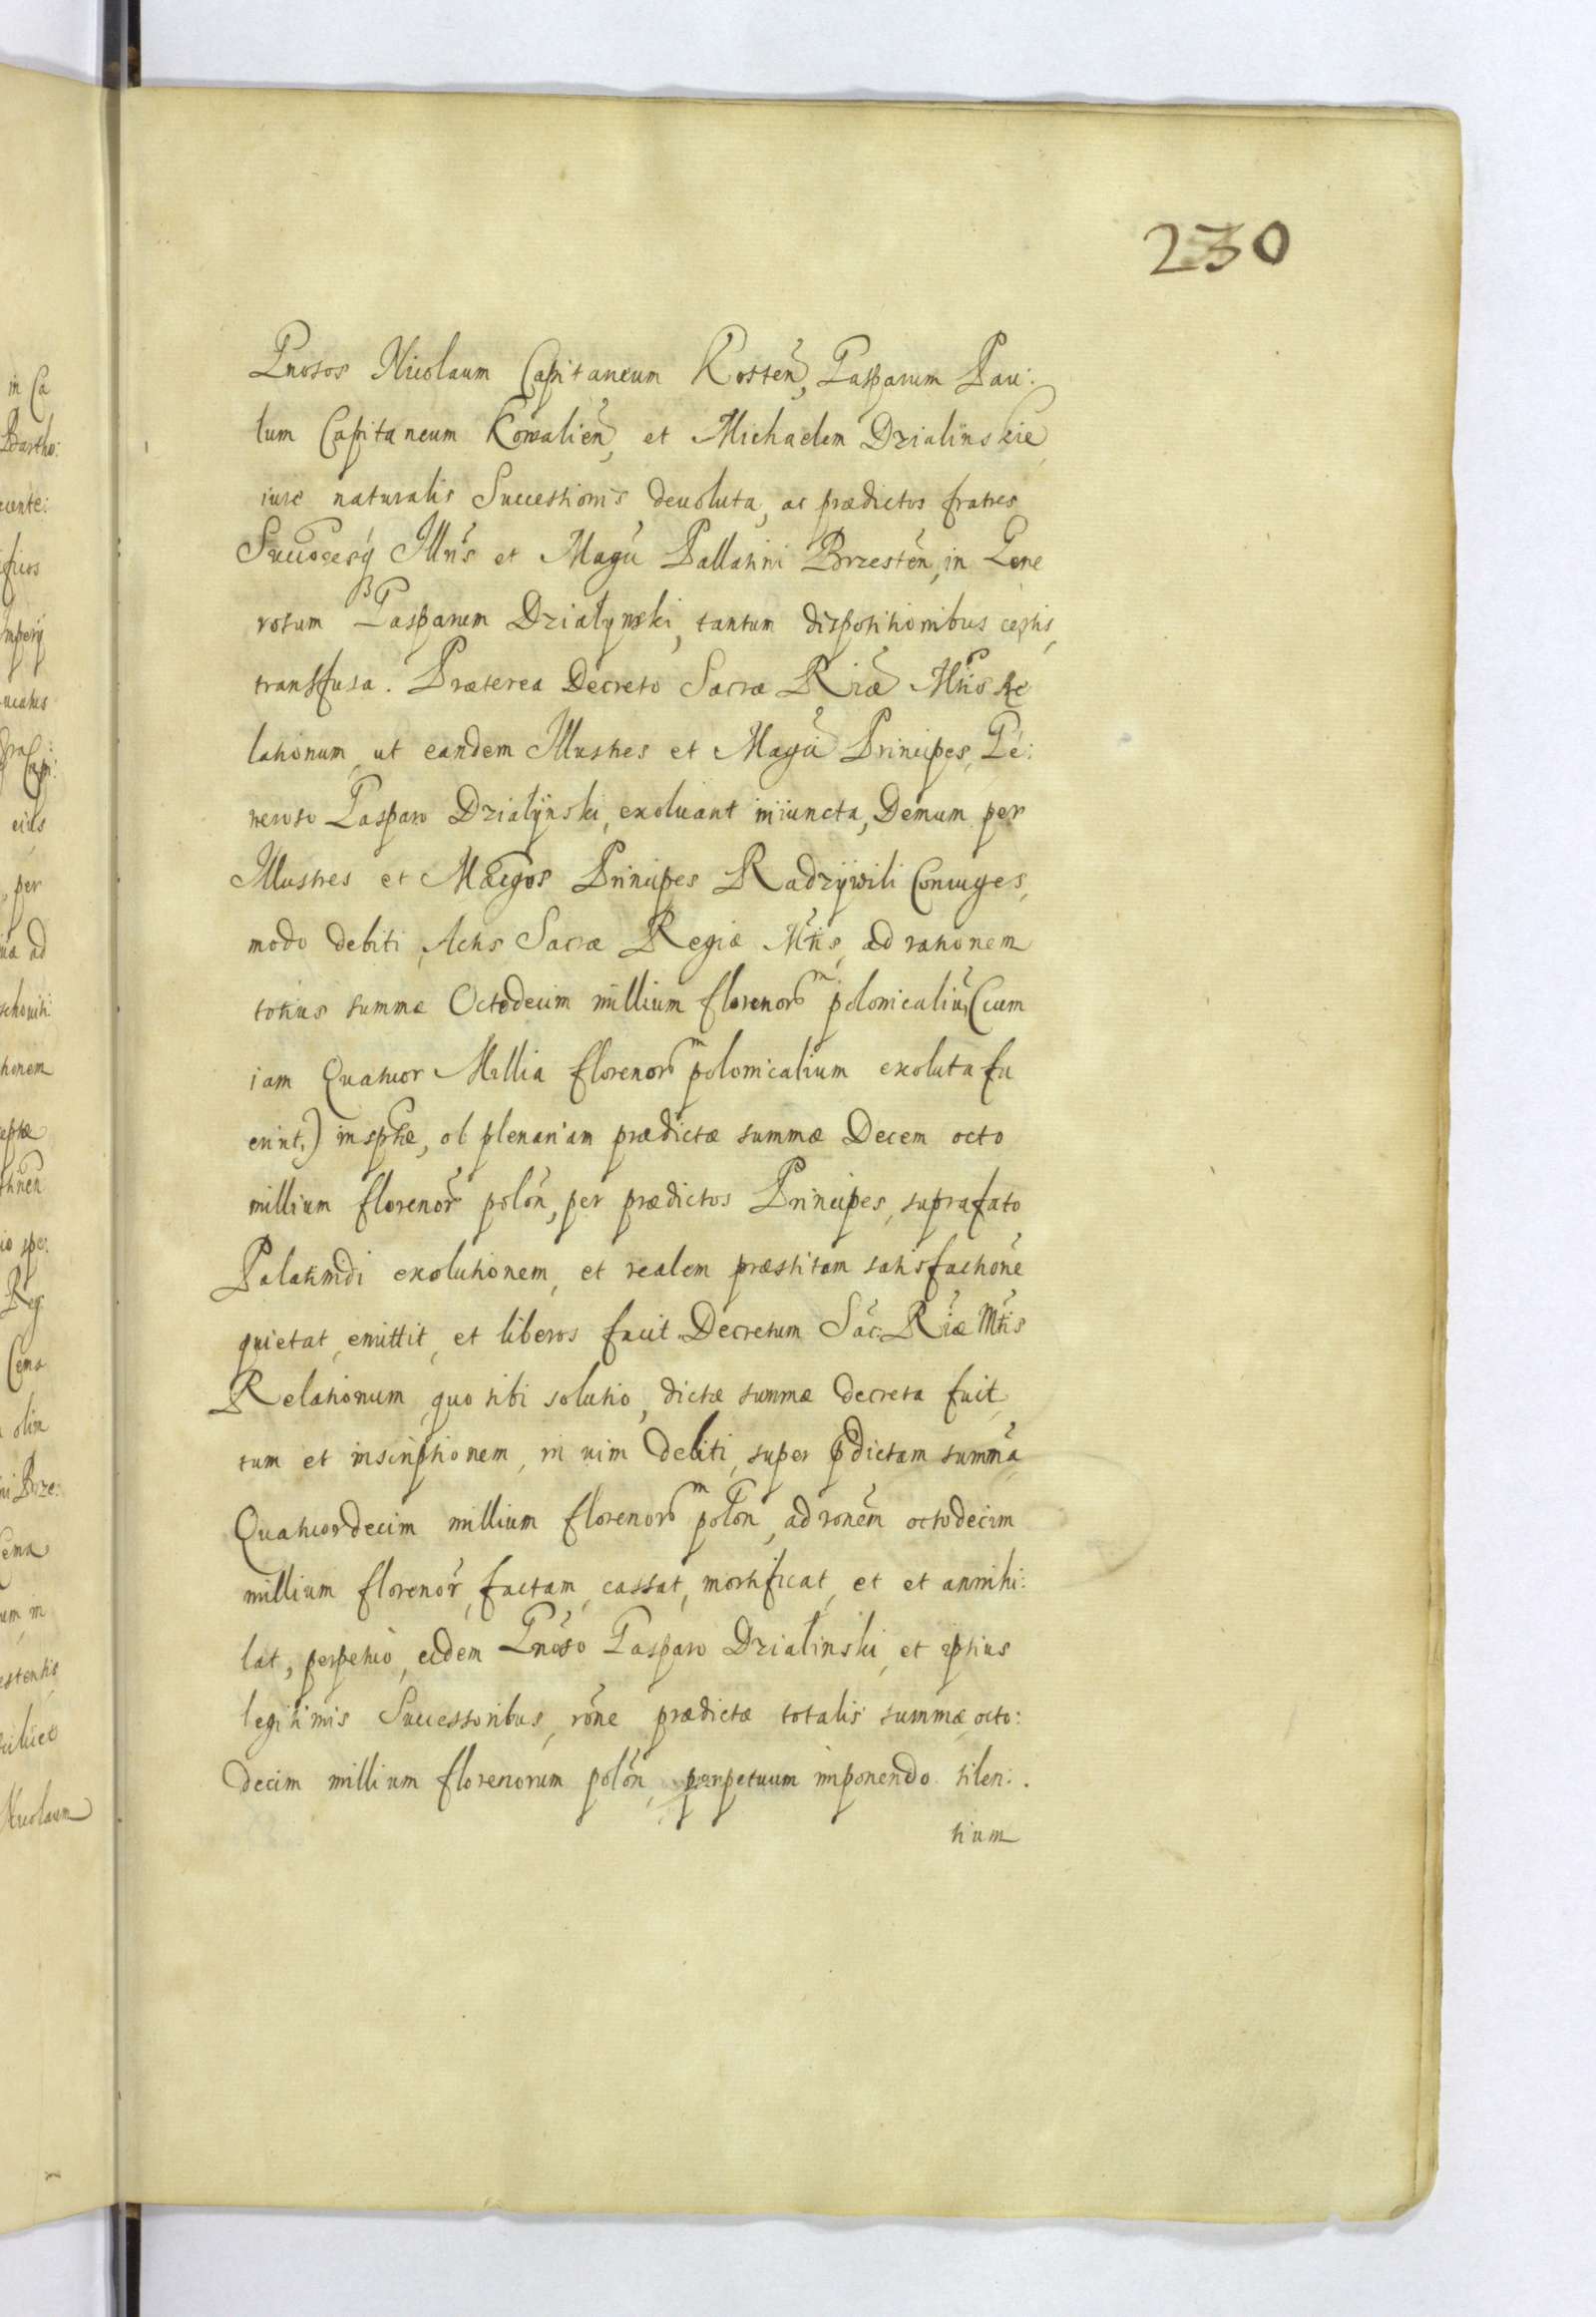 230
Gnosos Nicolaum Capitaneum Kosten, Gasparum Pau:
lum Capitaneum Kowalien, et Michaelem Dzialinskie
iure naturalis Successionis devoluta, ac prædictos fratres
Illris et Magci Pallatini Brzesten, in Gene
rosum Gasparum Dzialynski, tantum dispositionibus certis,
transfusa. Præterea Decreto Sacræ Riæ Mtis Re
lationum, ut eandem Illustres et Magci Principes, Ge:
neroso Gasparo Dzialÿnski, exoluant iniuncta, Demum per
Illustres et Magcos Principes Radzÿwili Coniuges,
modo debiti, Actis Sacræ Regiæ Mtis, ad rationem
totius summæ Octodecim millium florenorm polonicaliũ, (cum
iam Quatuor Millia florenorm polonicalium exoluta fu
erint,) inscptæ, ob plenariam prædictæ summæ Decem octo
millium florenor̃ polon̄, per prædictos Principes, suprafato
Palatinidi exolutionem, et realem præstitam satisfactionẽ
quietat, emittit, et liberos facit. Decretum Sac. Riæ Mtis
Relationum, quo sibi solutio, dictæ summæ decreta fuit,
tum et inscriptionem, in vim debiti, super pdictam summã
Quatuordecim millium florenorm polon, ad ronem octodecim
millium florenor̃, factam, cassat, mortificat, et et annihi:
lat, perpetuò, eidem Gnoso Gasparo Dzialinski, et ipsius
legitimis Successoribus, rone prædictæ totalis summæ octo:
decim millium florenorum polon, perpetuum imponendo silen:.
tium